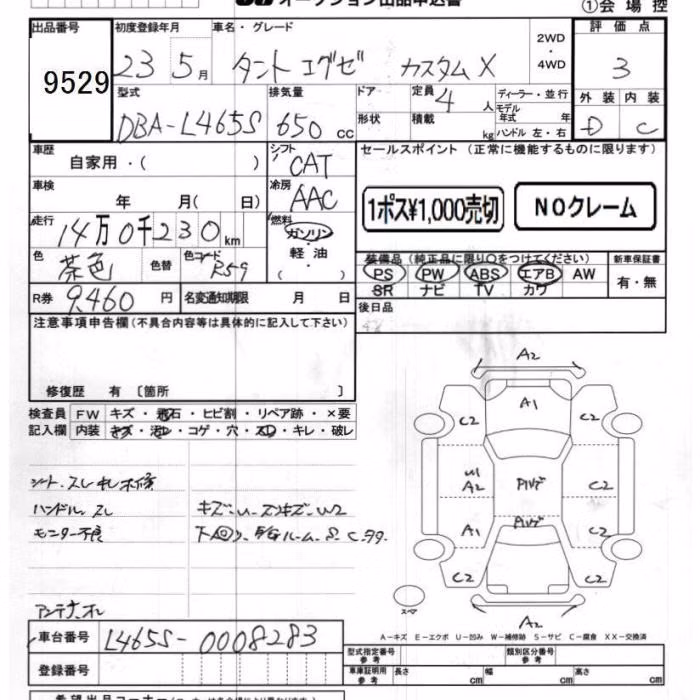 オークション出品申込書
①会場控
出品番号
9529
初度登録年月
23 5月
車名・グレード
タント エグゼ カスタム X
2WD
・
4WD
評価点
3
型式
DBA-L465S
排気量
650 cc
ドア・
形状
定員 4 人
積載 kg
ディーラー・並行
モデル
年式 年
ハンドル 左・右
外装 内装
D C
車歴
自家用・( )
シフト
CAT
セールスポイント (正常に機能するものに限ります)
車検
年 月( 日)
冷房
AAC
1ポス¥1,000売切
NOクレーム
走行
14万0千230km
燃料
ガソリン
・
軽油
・
( )
色
茶色
色替
色コード
R59
装備品 (純正品に限り○をつけてください)
PS PW ABS エアB AW
SR ナビ TV カワ
新車保証書
有・無
R券 9,460 円
名変通知期限 月 日
後日品
注意事項申告欄(不具合内容等は具体的に記入して下さい)
修復歴 有 〔箇所 〕
検査員
記入欄
FW キズ・飛石・ヒビ割・リペア跡・×要
内装 キズ・汚れ・コゲ・穴・スレ・キレ・破レ
シート、スレ キレ 補修
ハンドル スレ
モニター不良
キズ・U・ズンキズ・W2
下回り、ルーム、S、C、
アンテナ オレ
A2
A1
C2
C2
W1
A2
P1ハゲ
C2
A1
P1ハゲ
C2
C2
C2
スペア
A2
A-キズ E-エクボ U-凹み W-補修跡 S-サビ C-腐食 XX-交換済
車台番号 L465S-0008283
登録番号
型式指定番号
参考
類別区分番号
参考
車庫証明用
参考
長さ cm 幅 cm 高さ cm